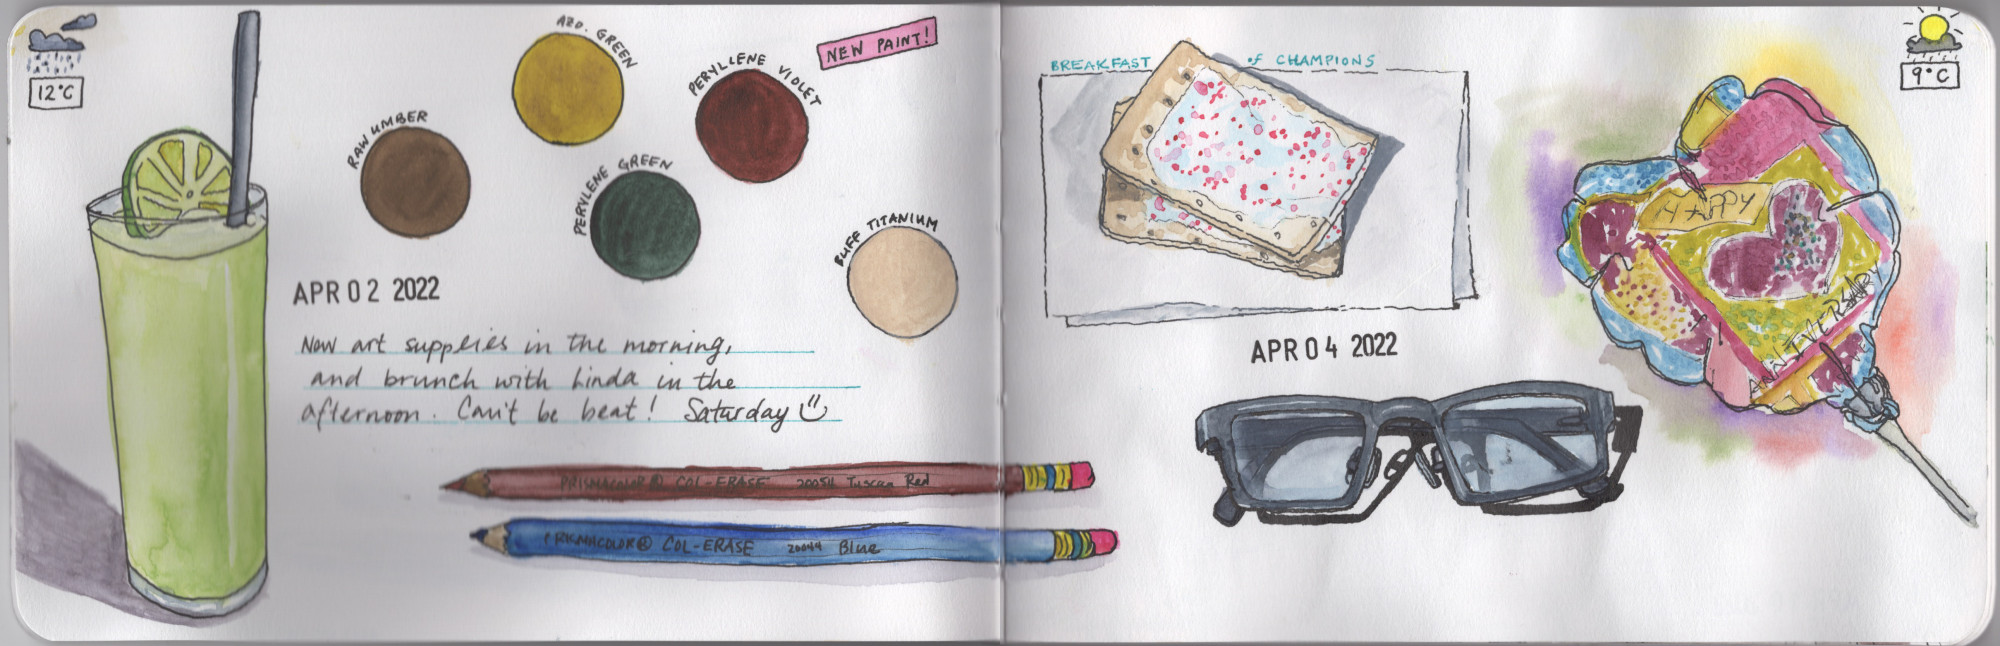 12°C
AZO. GREEN
NEW PAINT!
PERYLLENE VIOLET
RAW UMBER
PERYLENE GREEN
BUFF TITANIUM
APR 02 2022
New art supplies in the morning,
and brunch with Linda in the
afternoon. Can't be beat! Saturday
PRISMACOLOR® COL-ERASE 20054 Tuscan Red
PRISMACOLOR® COL-ERASE 20044 Blue
BREAKFAST of CHAMPIONS
9°C
HAPPY
ANNIVERSARY
APR 04 2022